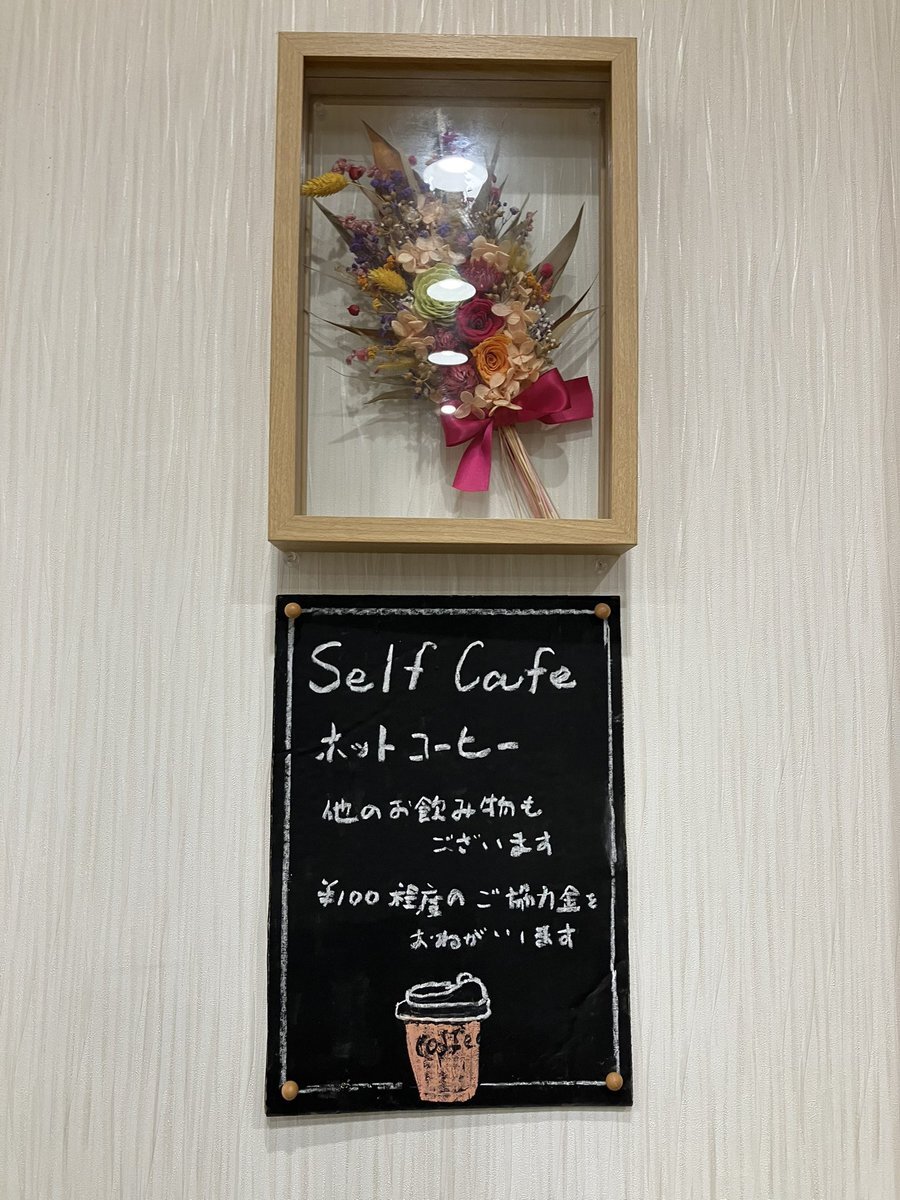 Self Cafe
ホットコーヒー
他のお飲み物も
ございます
¥100 程度の ご協力金を
おねがいします
coffee